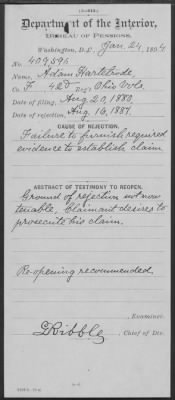 Department of the Interior,
BUREAU OF PENSIONS,
Washington, D.C., Jan. 24, 1894
No. 409,596
Name, Adam Hartetrode,
Co. F, 42d Reg't Ohio Vols.
Date of filing, Aug. 20, 1880.
Date of rejection, Aug. 16, 1887.
CAUSE OF REJECTION.
Failure to furnish required
evidence to establish claim.
ABSTRACT OF TESTIMONY TO REOPEN.
Ground of rejection not now
tenable. Claimant desires to
prosecute his claim.
Re-opening recommended.
, Examiner.
Dribble, Chief of Div.